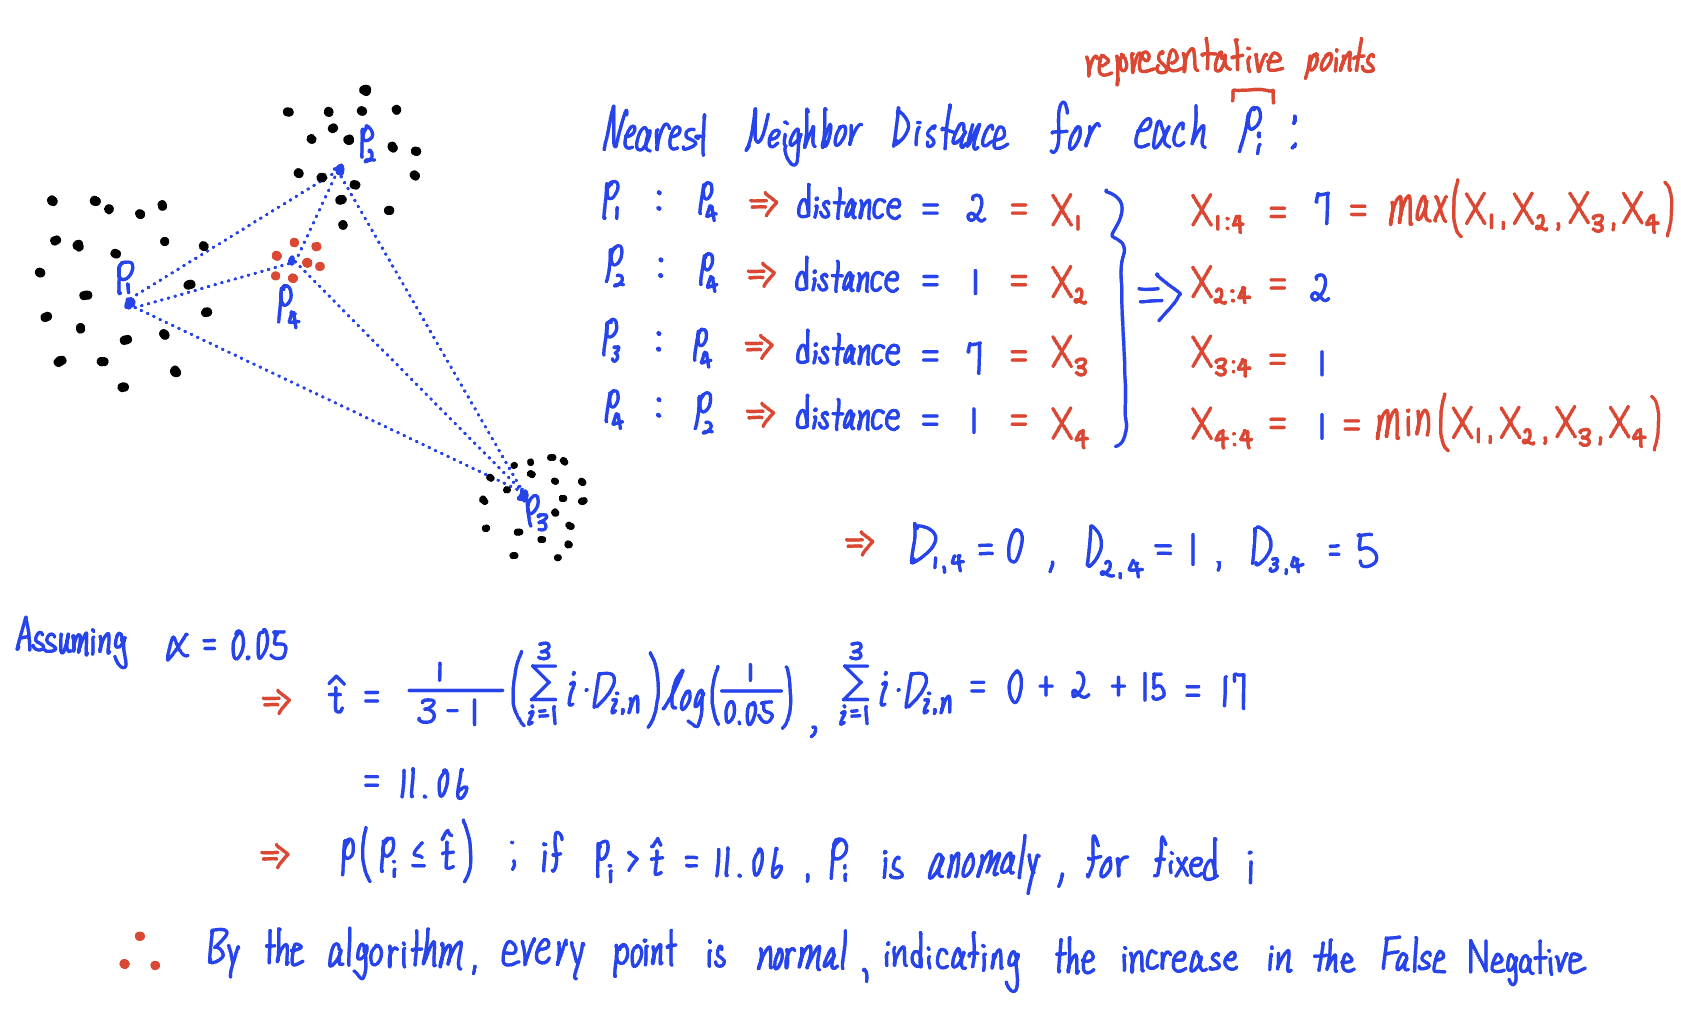 representative points
Nearest Neighbor Distance for each Pᵢ :
P₂
P₁
P₄
P₃
P₁ : P₄ ⇒ distance = 2 = X₁
P₂ : P₄ ⇒ distance = 1 = X₂
P₃ : P₄ ⇒ distance = 7 = X₃
P₄ : P₂ ⇒ distance = 1 = X₄
⇒
X₁:₄ = 7 = max(X₁, X₂, X₃, X₄)
X₂:₄ = 2
X₃:₄ = 1
X₄:₄ = 1 = min(X₁, X₂, X₃, X₄)
⇒ D₁,₄ = 0 , D₂,₄ = 1 , D₃,₄ = 5
Assuming α = 0.05
⇒ t̂ = 1/(3-1) (∑_{i=1}^{3} i·D_{i,n}) log(1/0.05) , ∑_{i=1}^{3} i·D_{i,n} = 0 + 2 + 15 = 17
= 11.06
⇒ P(Pᵢ ≤ t̂) ; if Pᵢ > t̂ = 11.06 , Pᵢ is anomaly, for fixed i
∴ By the algorithm, every point is normal, indicating the increase in the False Negative